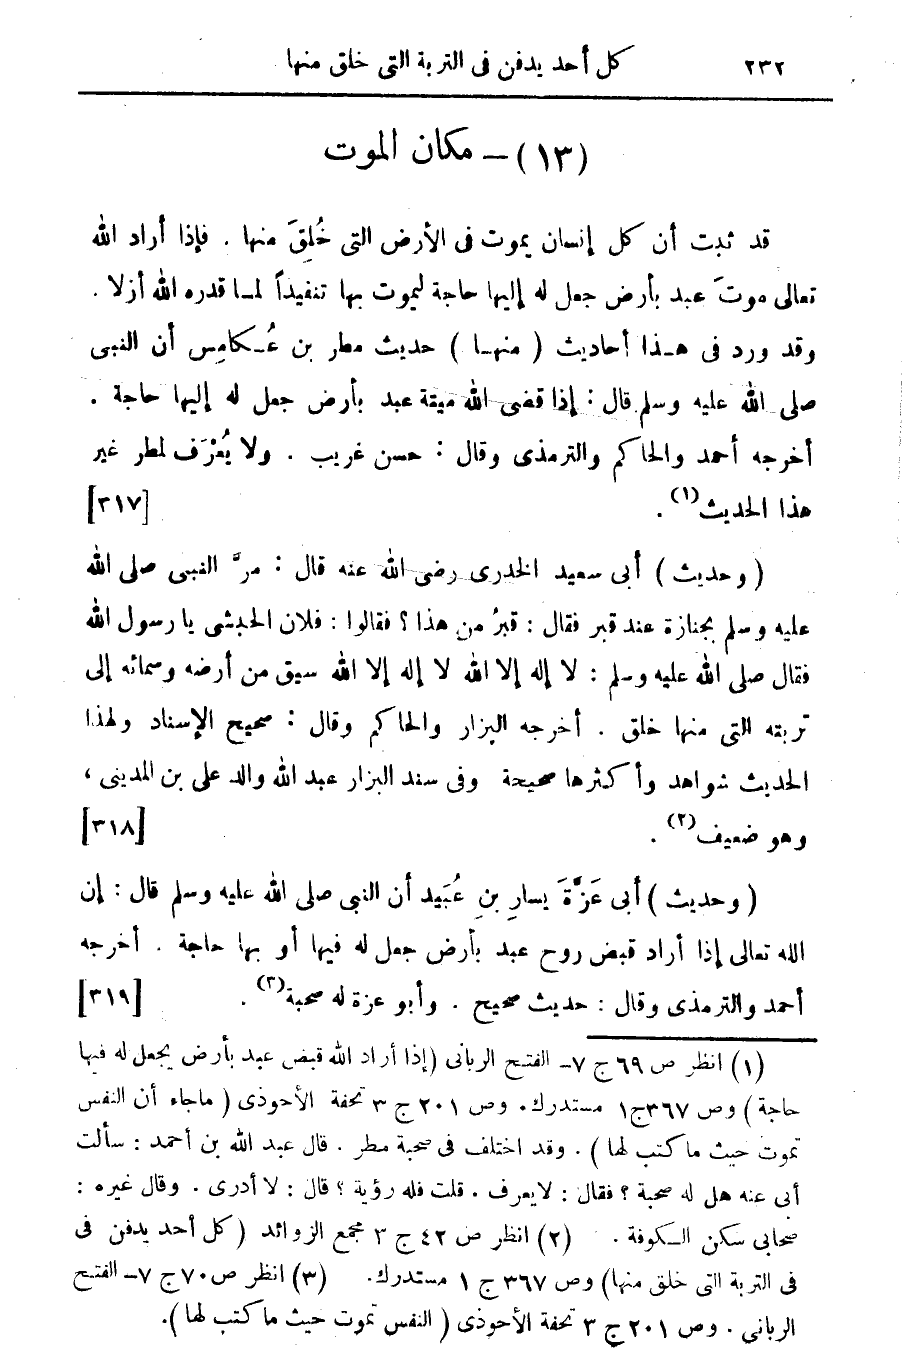 ٢٣٢ كل أحد يدفن فى التربة التى خلق منها
(١٣) – مكان الموت
قد ثبت أن كل إنسان يموت فى الأرض التى خُلِقَ منها . فإذا أراد الله
تعالى موتَ عبد بأرض جعل له إليها حاجة ليموت بها تنفيذاً لمـا قدره الله أزلا .
وقد ورد فى هـذا أحاديث ( منهـا ) حديث مطر بن عُـكامِس أن النبى
صلى الله عليه وسلم قال : إذا قضى الله ميتة عبد بأرض جعل له إليها حاجة .
أخرجه أحمد والحاكم والترمذى وقال : حسن غريب . ولا يُعْرَف لمطر غير
هذا الحديث(١) . [٣١٧]
( وحديث ) أبى سعيد الخدرى رضى الله عنه قال : مرَّ النبى صلى الله
عليه وسلم بجنازة عند قبر فقال : قبرُ من هذا ؟ فقالوا : فلان الحبشى يا رسول الله
فقال صلى الله عليه وسلم : لا إله إلا الله لا إله إلا الله سيق من أرضه وسمائه إلى
تربته التى منها خلق . أخرجه البزار والحاكم وقال : صحيح الإسناد ولهذا
الحديث شواهد وأكثرها صحيحة وفى سند البزار عبد الله والد على بن المدينى ،
وهو ضعيف(٢) . [٣١٨]
( وحديث ) أبى عَزَّةَ يسارِ بنِ عُبَيد أن النبى صلى الله عليه وسلم قال : إن
الله تعالى إذا أراد قبض روح عبد بأرض جعل له فيها أو بها حاجة . أخرجه
أحمد والترمذى وقال : حديث صحيح . وأبو عزة له صحبة(٣) . [٣١٩]
(١) انظر ص ٦٩ ج ٧– الفتح الربانى (إذا أراد الله قبض عبد بأرض يجعل له فيها
حاجة ) وص ٣٦٧ج١ مستدرك. وص ٢٠١ ج ٣ تحفة الأحوذى ( ماجاء أن النفس
تموت حيث ما كتب لها ) . وقد اختلف فى صحبة مطر . قال عبد الله بن أحمد : سألت
أبى عنه هل له صحبة ؟ فقال : لايعرف . قلت فله رؤية ؟ قال : لا أدرى . وقال غيره :
صحابى سكن الـكوفة . (٢) انظر ص ٤٢ ج ٣ مجمع الزوائد (كل أحد يدفن فى
فى التربة التى خلق منها) وص ٣٦٧ ج ١ مستدرك. (٣) انظر ص ٧٠ ج ٧– الفتح
الربانى . وص ٢٠١ ج ٣ تحفة الأحوذى ( النفس تموت حيث ما كتب لها ).